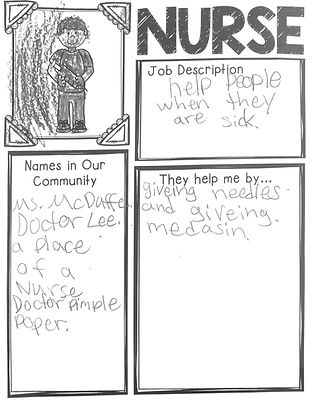 NURSE
Job Description
help people
when they
are sick.
Names in Our
Community
Ms. McDuffe
Doctor Lee.
a place
of a
Nurse
Doctor Pimple
Poper.
They help me by...
giveing needles
and giveing
medasin.